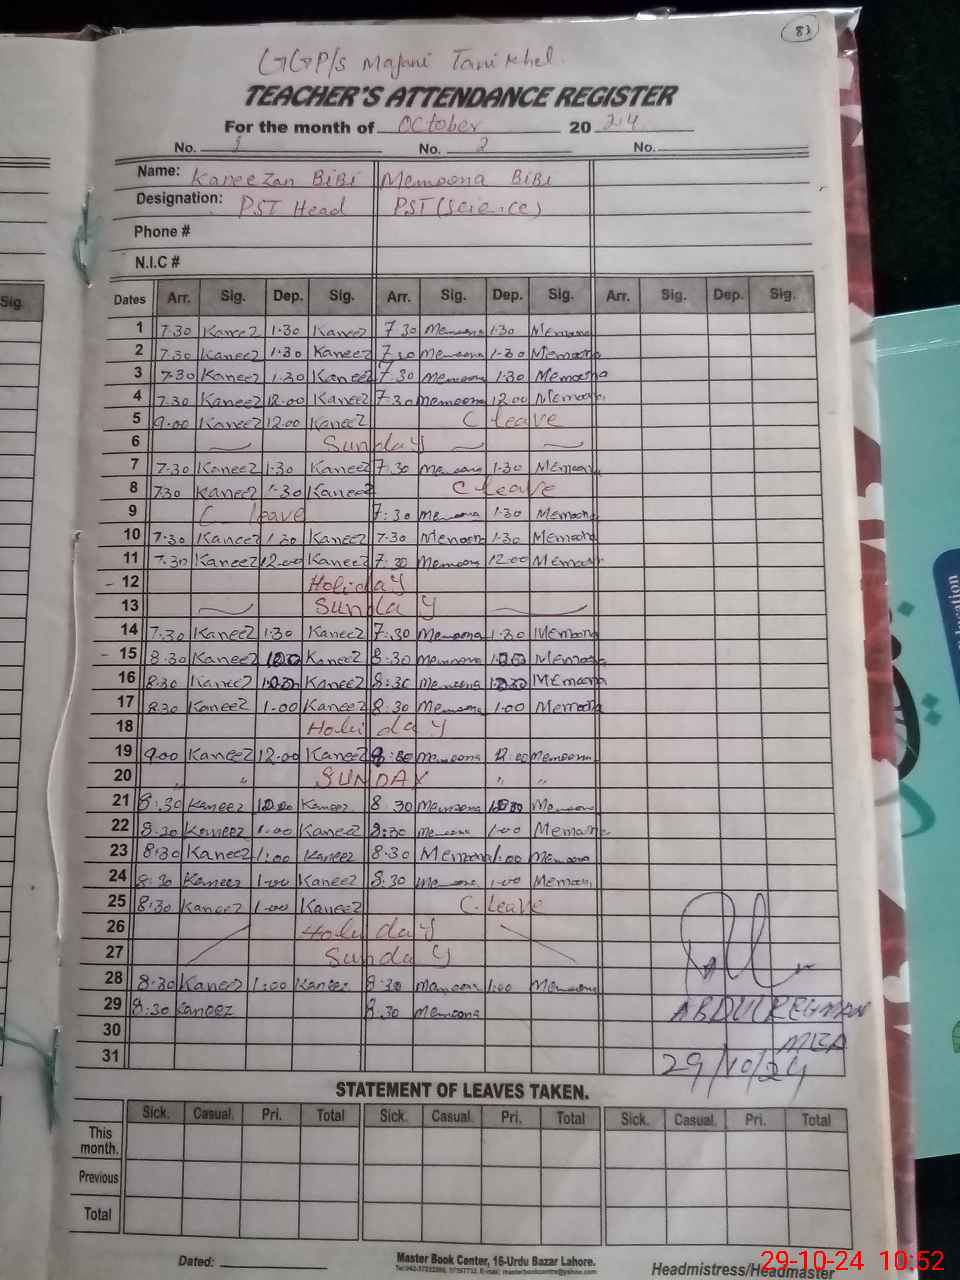 83
GGP/S Majani Tanikhel.
TEACHER'S ATTENDANCE REGISTER
For the month of October 2024
No. 1 No. 2 No.
Name: Kaneezan BiBi Memoona BiBi
Designation: PST Head PST (Science)
Phone #
N.I.C #
Sig. Dates Arr. Sig. Dep. Sig. Arr. Sig. Dep. Sig. Arr. Sig. Dep. Sig.
1 7.30 Kaneez 1.30 Kaneez 7 30 Memoona 1.30 Memoona
2 7.30 Kaneez 1.30 Kaneez 7.30 Memoona 1.30 Memoona
3 7.30 Kaneez 1.30 Kaneez 7.30 Memoona 1.30 Memoona
4 7.30 Kaneez 12.00 Kaneez 7.30 Memoona 12.00 Memoona
5 9.00 Kaneez 12.00 Kaneez C leave
6 Sunday
7 7.30 Kaneez 1.30 Kaneez 7.30 Memoona 1.30 Memoona
8 7.30 Kaneez 1.30 Kaneez C leave
9 C leave 7:30 Memoona 1.30 Memoona
10 7.30 Kaneez 1.30 Kaneez 7.30 Memoona 1.30 Memoona
11 7.30 Kaneez 12.00 Kaneez 7.30 Memoona 12.00 Memoona
- 12 Holiday
13 Sunday
14 7.30 Kaneez 1.30 Kaneez 7:.30 Memoona 1.30 Memoona
- 15 8.30 Kaneez 1.00 Kaneez 8.30 Memoona 1.00 Memoona
16 8.30 Kaneez 1.00 Kaneez 8.30 Memoona 1.00 Memoona
17 8.30 Kaneez 1.00 Kaneez 8.30 Memoona 1.00 Memoona
18 Holiday
19 9.00 Kaneez 12.00 Kaneez Memoona 12.00 Memoona
20 " " SUNDAY " "
21 8.30 Kaneez 1.00 Kaneez 8.30 Memoona 1.00 Memoona
22 8.30 Kaneez 1.00 Kaneez 8:30 Memoona 1.00 Memoona
23 8:30 Kaneez 1:00 Kaneez 8.30 Memoona 1:00 Memoona
24 8:30 Kaneez 1.00 Kaneez 8.30 Memoona 1.00 Memoona
25 8:30 Kaneez 1.00 Kaneez C. Leave
26 Holiday
27 Sunday
28 8:30 Kaneez 1:00 Kaneez 8:30 Memoona 1:00 Memoona
29 8:30 Kaneez 8.30 Memoona
ABDUL REHMAN
30
MEA
31
29/10/24
STATEMENT OF LEAVES TAKEN.
Sick. Casual. Pri. Total Sick. Casual. Pri. Total Sick. Casual. Pri. Total
This month.
Previous
Total
Dated:
Master Book Center, 16-Urdu Bazar Lahore.
Headmistress/Headmaster
29-10-24 10:52